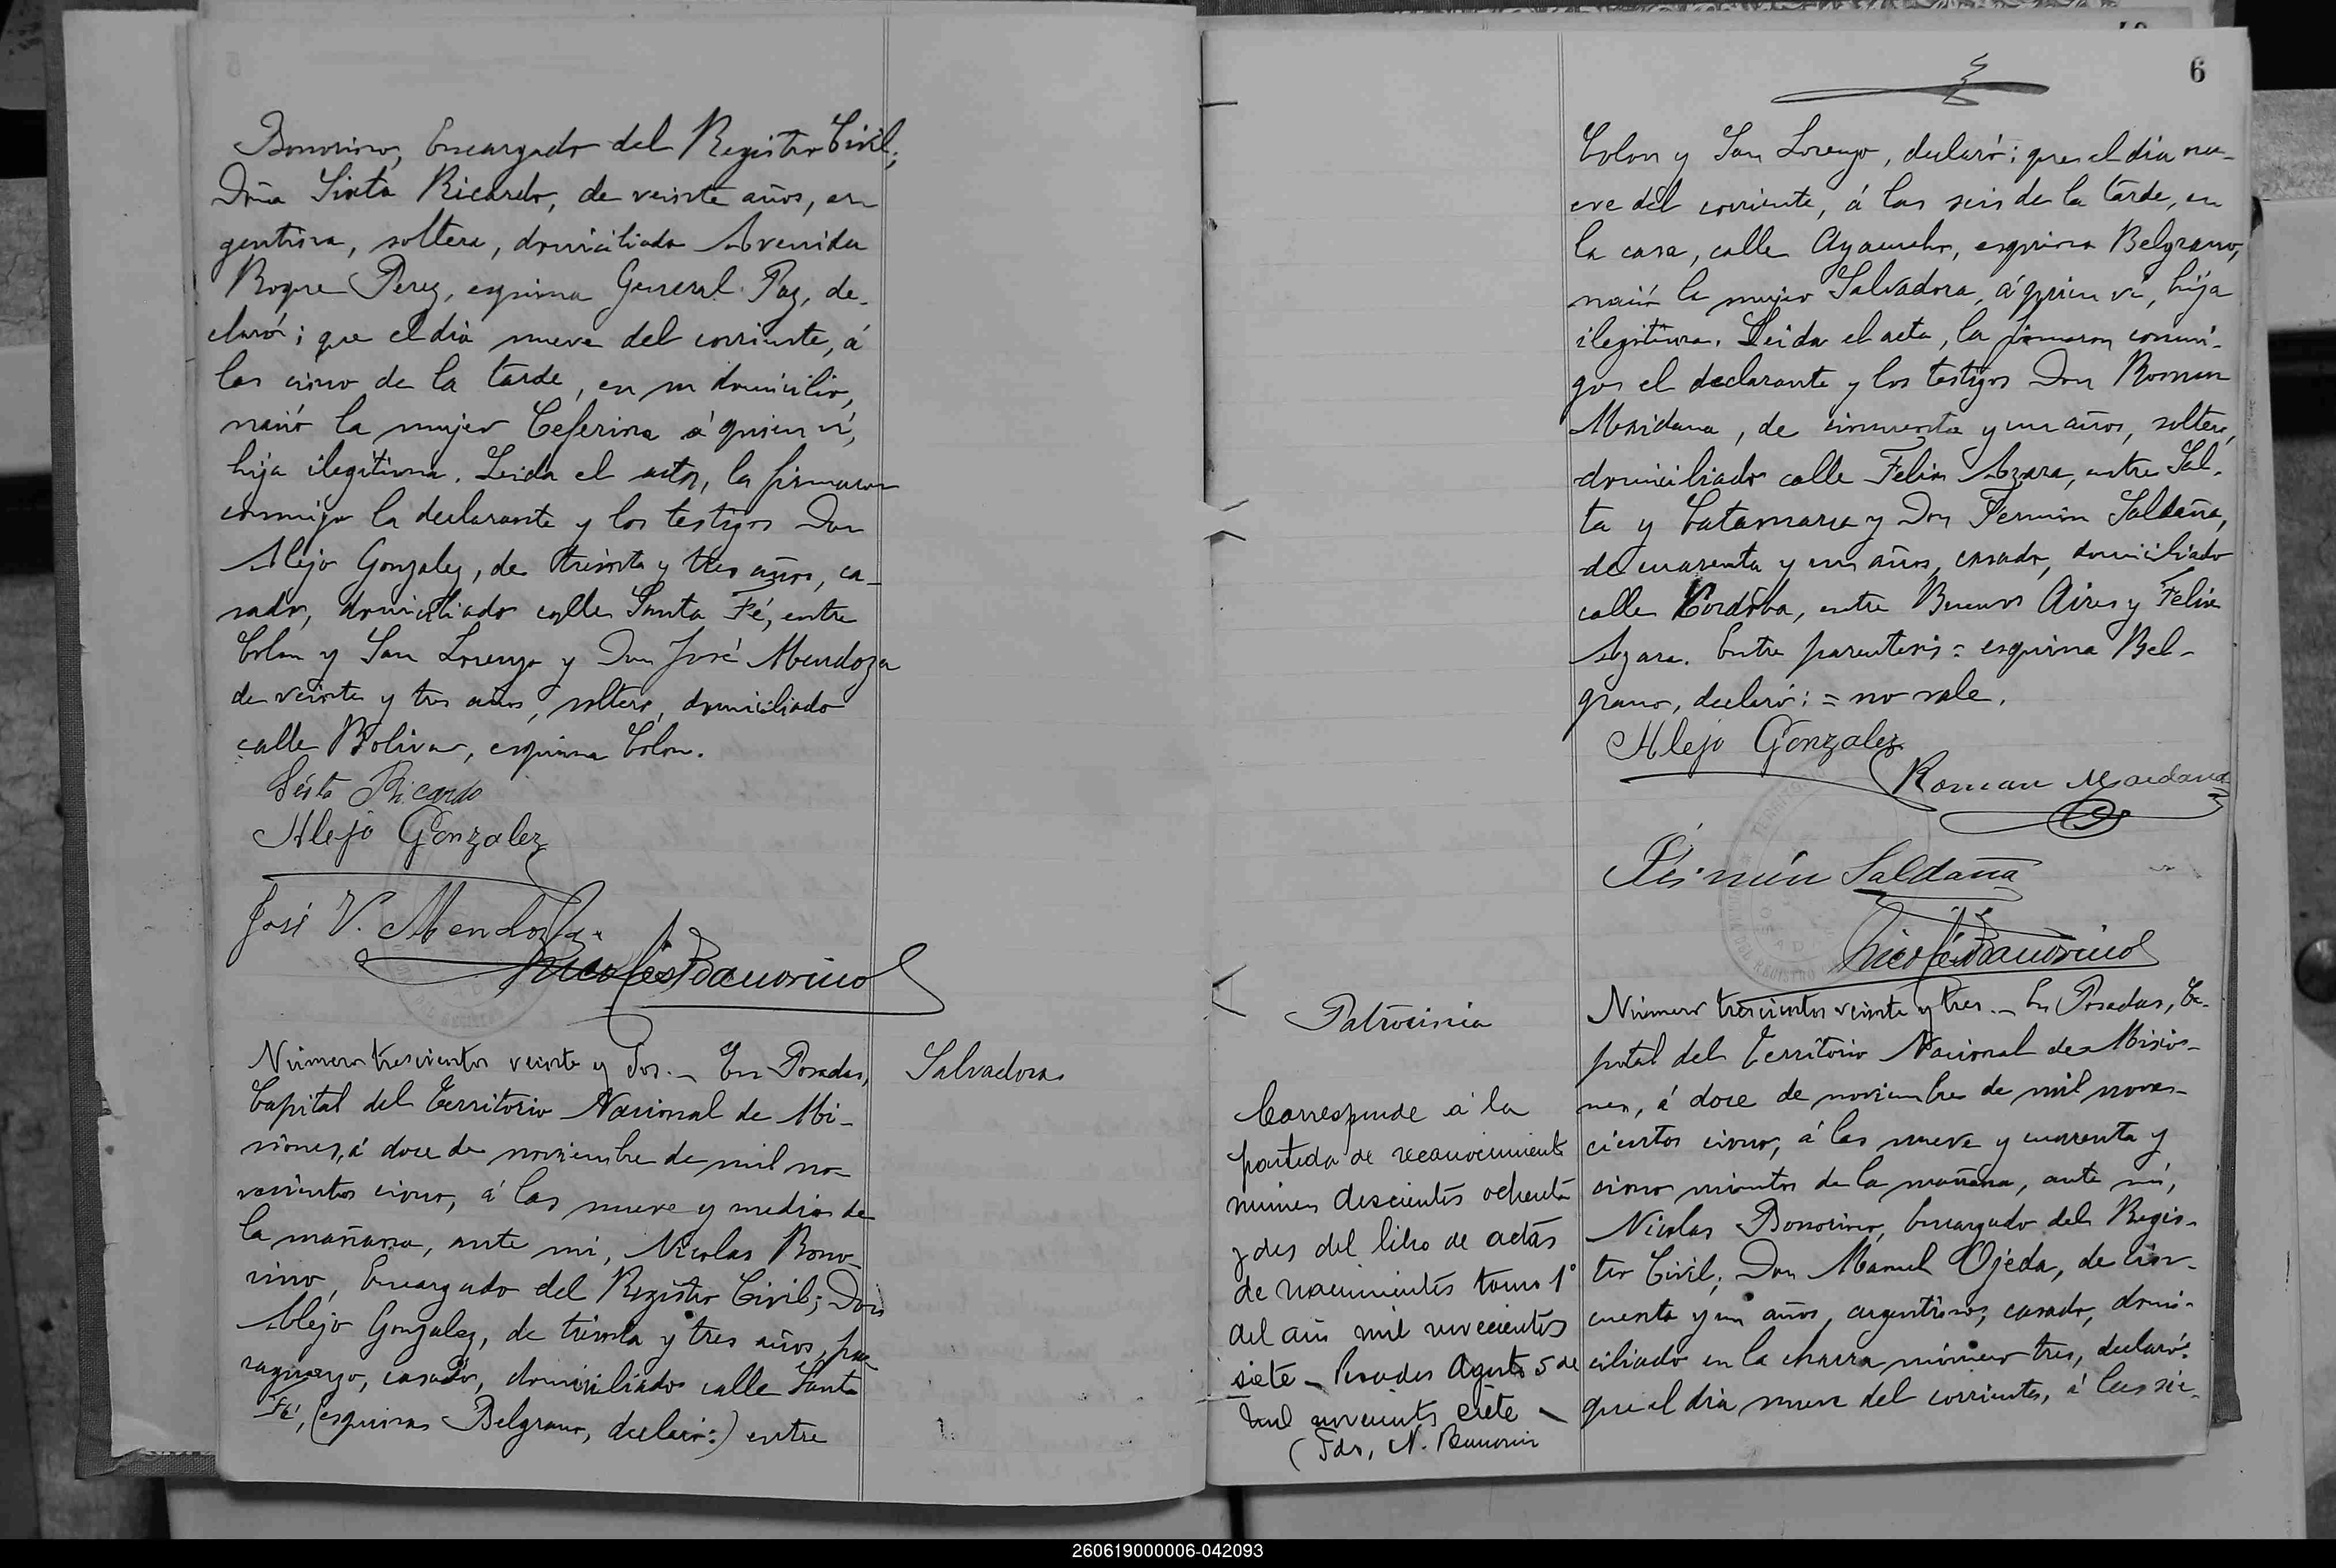 Bonorino, Encargado del Registro Civil;
Doña Sixta Ricardo, de veinte años, ar
gentina, soltera, domiciliada Avenida
Roque Perez, esquina General Paz, de-
claró; que el dia nueve del corriente, á
las cinco de la tarde, en su domicilio,
nació la mujer Ceferina á quien ví,
hija ilegitima. Leida el acta, la firmaron
conmigo la declarante y los testigos Don
Alejo Gonzalez, de treinta y tres años, ca-
sado, domiciliado calle Santa Fé, entre
Colon y San Lorenzo y Don José Mendoza
de veinte y tres años, soltero, domiciliado
calle Bolivar, esquina Colon.
Sésta Ricardo
Alejo Gonzalez
José V. Mendoza
Nicolás Bonorino
Número trescientos veinte y dos.- En Posadas,
Capital del Territorio Nacional de Mi-
siones, á doce de noviembre de mil no-
vecientos cinco, á las nueve y media de
la mañana, ante mi, Nicolas Bono-
rino, Encargado del Registro Civil; Don
Alejo Gonzalez, de treinta y tres años, pa-
raguayo, casado, domiciliado calle Santa
Fé, (esquina Belgrano, declaró:) entre
Salvadora
6
Colon y San Lorenzo, declaró; que el dia nu-
eve del corriente, á las seis de la tarde, en
la casa, calle Ayacucho, esquina Belgrano,
nació la mujer Salvadora, á quien ví, hija
ilegitima. Leida el acta, la firmaron conmi-
go el declarante y los testigos Don Roman
Maidana, de cincuenta y un años, soltero,
domiciliado calle Felix Azara, entre Sal-
ta y Catamarca y Don Fermin Saldaña,
de cuarenta y un años, casado, domiciliado
calle Cordoba, entre Buenos Aires y Felix
Azara. Entre parentesis = esquina Bel-
grano, declaró: = no vale.
Alejo Gonzalez
Roman Maidana
Férmín Saldaña
Nicolás Bonorino
Patrocinia
Corresponde á la
partida de reconocimiento
número doscientos ochenta
y dos del libro de actas
de nacimientos tomo 1º
del año mil novecientos
siete - Posadas Agosto 5 de
mil novecientos siete -
(Fdo, N. Bonorino
Número trescientos veinte y tres.- En Posadas, Ca-
pital del Territorio Nacional de Misio-
nes, á doce de noviembre de mil nove-
cientos cinco, á las nueve y cuarenta y
cinco minutos de la mañana, ante mí,
Nicolas Bonorino, Encargado del Regis-
tro Civil; Don Manuel Ojeda, de cin-
cuenta y un años, argentino, casado, domi-
ciliado en la chacra número tres, declaró:
que el dia nueve del corriente, á las sie-
260619000006-042093